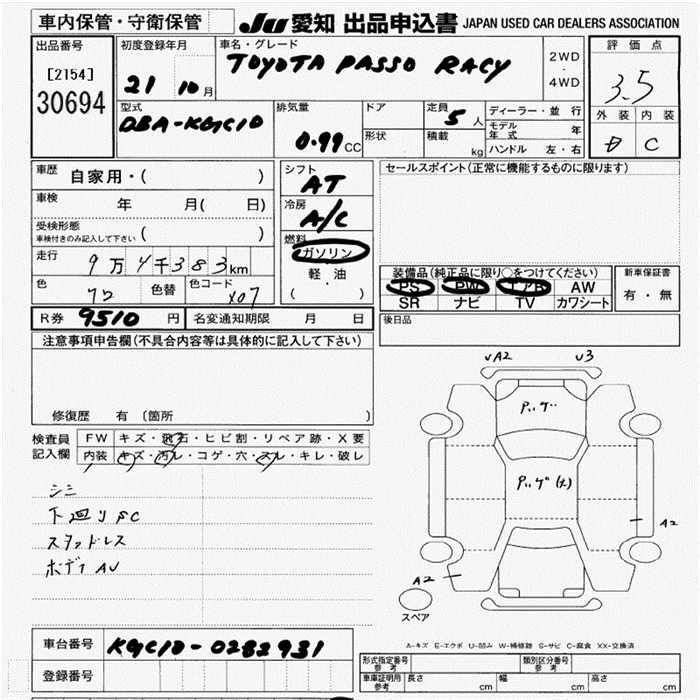 車内保管・守衛保管
JU 愛知 出品申込書 JAPAN USED CAR DEALERS ASSOCIATION
出品番号
[2154]
30694
初度登録年月
21 10月
車名・グレード
TOYOTA PASSO RACY
2WD
・
4WD
評価点
3.5
外装 内装
D C
型式
DBA-KGC10
排気量
0.99 CC
ドア
形状
定員 5 人
積載 kg
ディーラー・並行
モデル年式 年
ハンドル 左・右
車歴 自家用・( )
車検 年 月( 日)
受検形態
車検付きのみ記入して下さい ( )
走行 9万4千383km
色 色替 色コード X07
シフト
AT
冷房
A/C
燃料
ガソリン
軽油
( ・ )
セールスポイント(正常に機能するものに限ります)
装備品(純正品に限り○をつけてください)
PS PW エアB AW
SR ナビ TV カワシート
新車保証書
有・無
後日品
R券 9510 円 名変通知期限 月 日
注意事項申告欄(不具合内容等は具体的に記入して下さい)
修復歴 有 〔箇所 〕
検査員
記入欄
FW キズ・飛石・ヒビ割・リペア跡・X要
内装 キズ・汚レ・コゲ・穴・スレ・キレ・破レ
シミ
下廻りSC
スタッドレス
ボディAU
√A2 U3
A2
A2
スペア
A-キズ E-エクボ U-凹み W-補修跡 S-サビ C-腐食 XX-交換済
車台番号 KGC10-0282931
登録番号
形式指定番号
参考
類別区分番号
参考
車庫証明用
参考
長さ cm 幅 cm 高さ cm